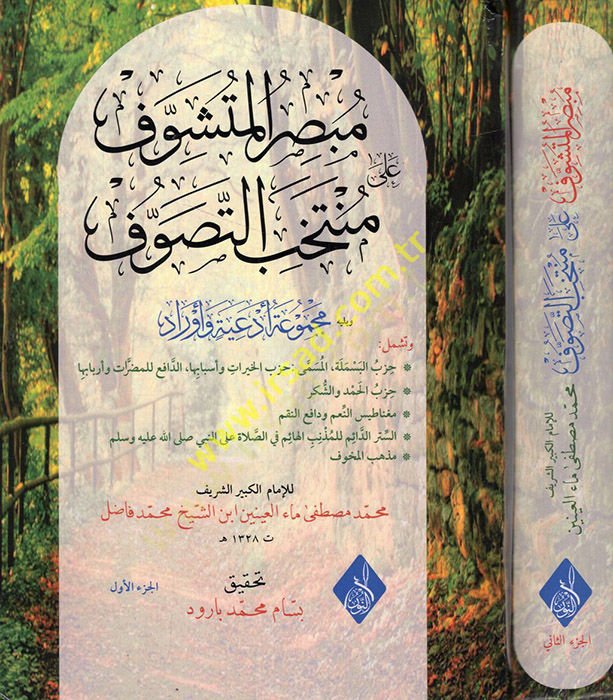 مُبْصِرُ المُتَشَوِّفِ
عَلَى
مُنْتَخَبِ التَّصَوُّفِ
ويليه مجموعة أدعية وأوراد
وتشمل:
* حِزبُ البَسْمَلَة، المُسَمَّى: حزب الخيرات وأسبابها، الدَّافع للمضرَّات وأربابها
* حِزبُ الحَمْد والشُّكر
* مغناطيس النِّعم ودافع النقم
* الستر الدَّائِم للمُذْنِبِ الهائِم في الصَّلاة على النبي صلى الله عليه وسلم
* مذهب المخوف
للإمام الكبير الشريف
محمَّد مصطفى ماء العينين ابن الشَّيخ محمَّد فاضل
ت ١٣٢٨ هـ
تحقيق
بسَّام محمَّد بارود
الجزء الأول
النور
www.irsad.com.tr
مبصر المتشوف على منتخب التصوف
للإمام الكبير الشريف
محمد مصطفى ماء العينين
النور
الجزء الثاني